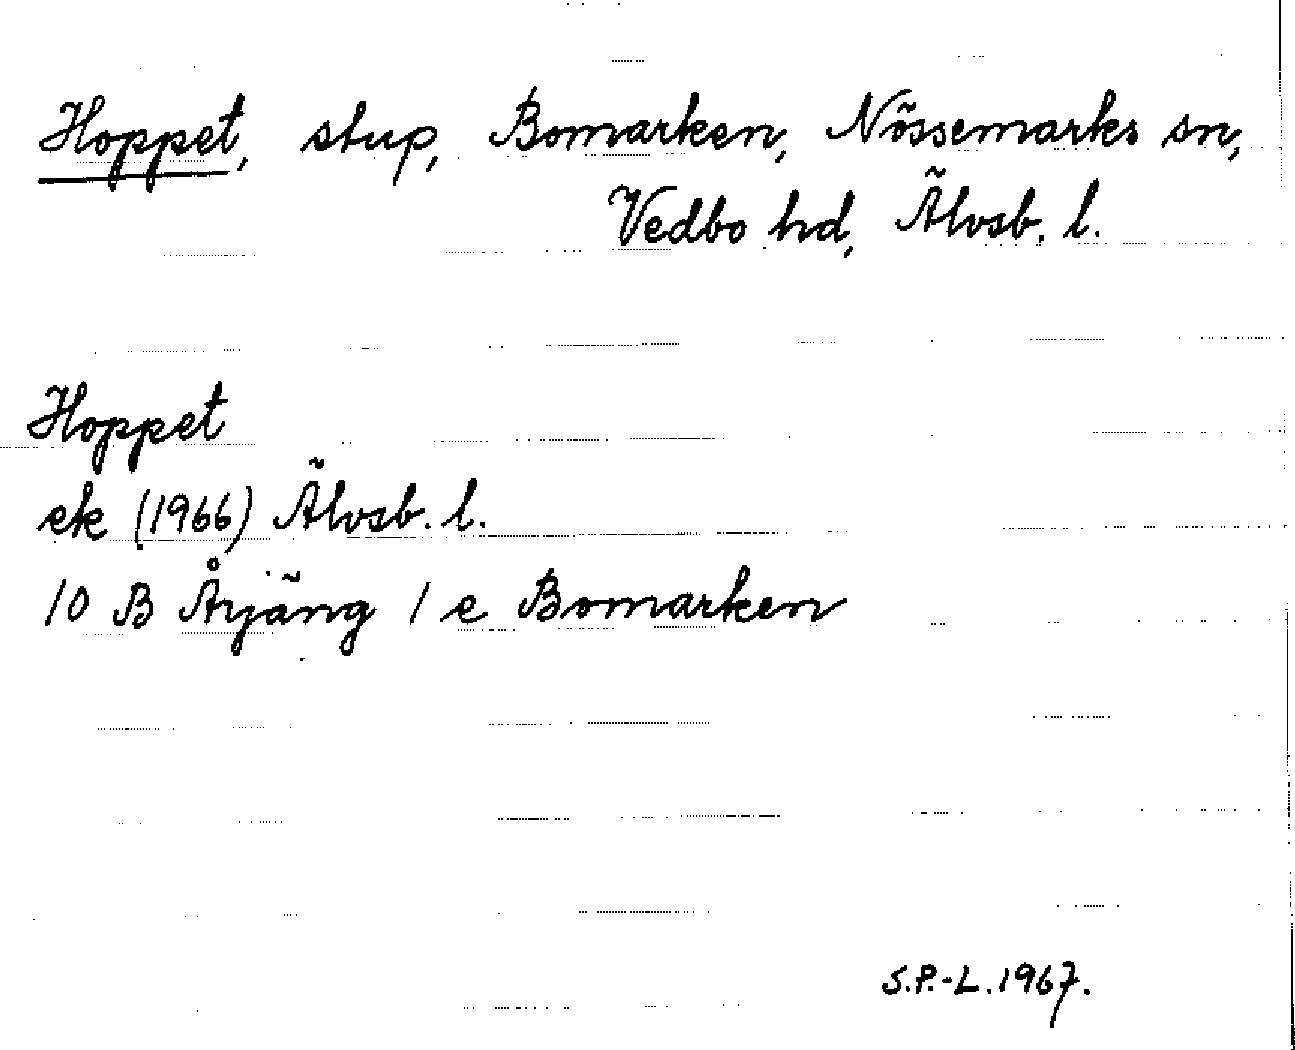 Hoppet, stup, Bomarken, Nössemarks sn,
Vedbo hd, Älvsb. l.
Hoppet
ek (1966) Älvsb. l.
10 B Årjäng 1 e Bomarken
S.P.-L. 1967.